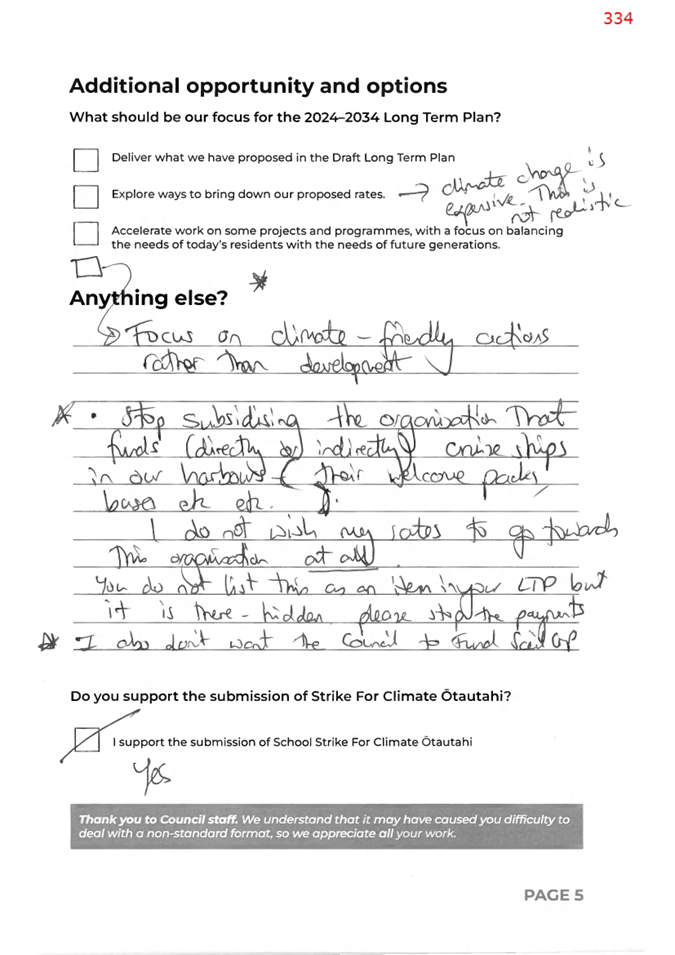 334
Additional opportunity and options
What should be our focus for the 2024–2034 Long Term Plan?
Deliver what we have proposed in the Draft Long Term Plan
Explore ways to bring down our proposed rates.
climate change is
expensive. That is
not realistic
Accelerate work on some projects and programmes, with a focus on balancing
the needs of today's residents with the needs of future generations.
Anything else?
Focus on climate-friendly actions
rather than development
• Stop subsidising the organisation That
funds (directly or indirectly) cruise ships
in our harbours - their welcome packs,
buses etc etc.
I do not wish my rates to go towards
This organisation at all.
You do not list this as an item in your LTP but
it is there - hidden. please stop the payments
I also don't want the Council to Fund Sail GP
Do you support the submission of Strike For Climate Ōtautahi?
I support the submission of School Strike For Climate Ōtautahi
Yes
Thank you to Council staff. We understand that it may have caused you difficulty to
deal with a non-standard format, so we appreciate all your work.
PAGE 5